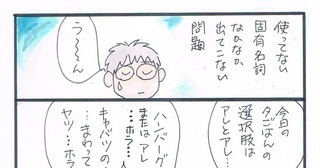 使ってない
固有名詞
なかなか
出てこない
問題
う〜〜〜ん
今日の
夕ごはんの
選択肢は
アレとアレ
ハンバーグ
またはアレ
…ホラ…
キャベツの
…まわって
ヤツ…ホラ